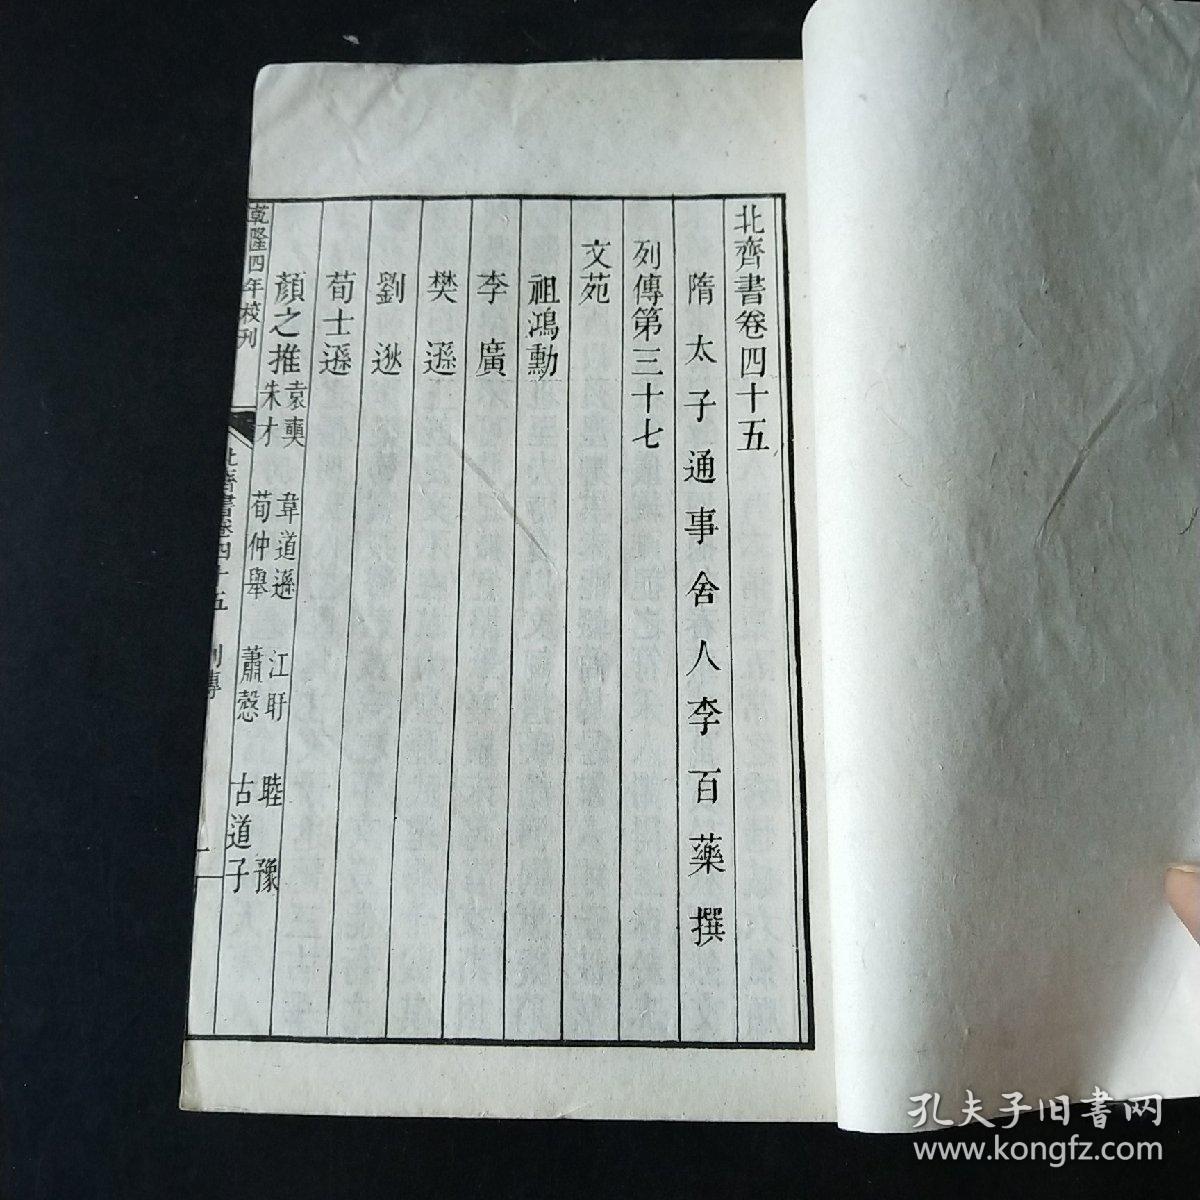 北齊書卷四十五
隋太子通事舍人李百藥撰
列傳第三十七
文苑
祖鴻勳
李廣
樊遜
劉逖
荀士遜
顏之推 袁奭 韋道遜 江旰 睦豫
朱才 荀仲舉 蕭慤 古道子
乾隆四年校刊
北齊書卷四十五 列傳
孔夫子旧书网
www.kongfz.com